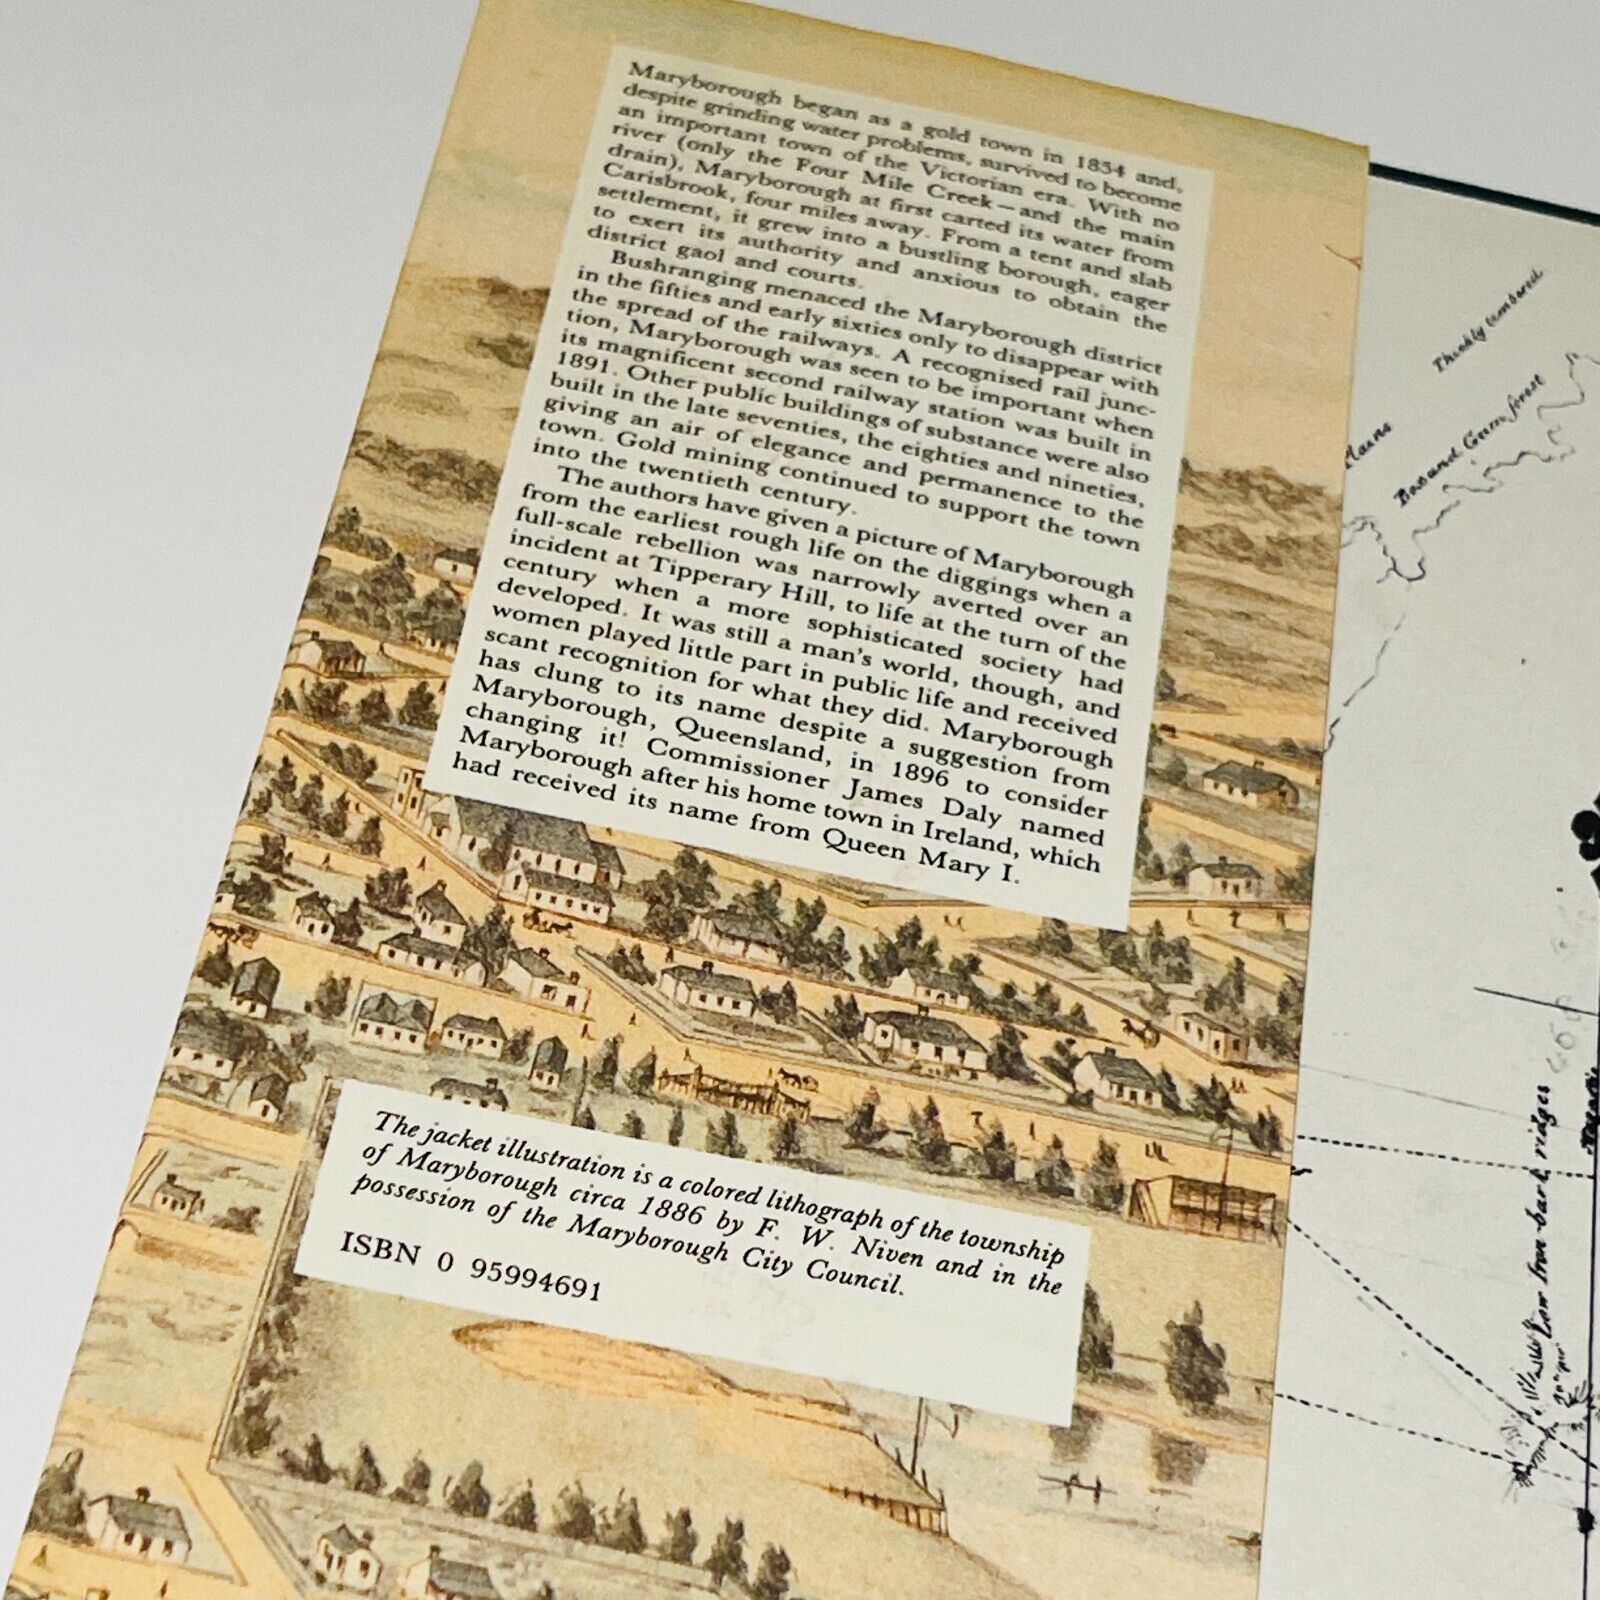 Maryborough began as a gold town in 1854 and,
despite grinding water problems, survived to become
an important town of the Victorian era. With no
river (only the Four Mile Creek—and the main
drain), Maryborough at first carted its water from
Carisbrook, four miles away. From a tent and slab
settlement, it grew into a bustling borough, eager
to exert its authority and anxious to obtain the
district gaol and courts.
Bushranging menaced the Maryborough district
in the fifties and early sixties only to disappear with
the spread of the railways. A recognised rail junc-
tion, Maryborough was seen to be important when
its magnificent second railway station was built in
1891. Other public buildings of substance were also
built in the late seventies, the eighties and nineties,
giving an air of elegance and permanence to the
town. Gold mining continued to support the town
into the twentieth century.
The authors have given a picture of Maryborough
from the earliest rough life on the diggings when a
full-scale rebellion was narrowly averted over an
incident at Tipperary Hill, to life at the turn of the
century when a more sophisticated society had
developed. It was still a man's world, though, and
women played little part in public life and received
scant recognition for what they did. Maryborough
has clung to its name despite a suggestion from
Maryborough, Queensland, in 1896 to consider
changing it! Commissioner James Daly named
Maryborough after his home town in Ireland, which
had received its name from Queen Mary I.
The jacket illustration is a colored lithograph of the township
of Maryborough circa 1886 by F. W. Niven and in the
possession of the Maryborough City Council.
ISBN 0 95994691
Thickly timbered
Plains
Box and Gum forest
Low Iron bark ridges